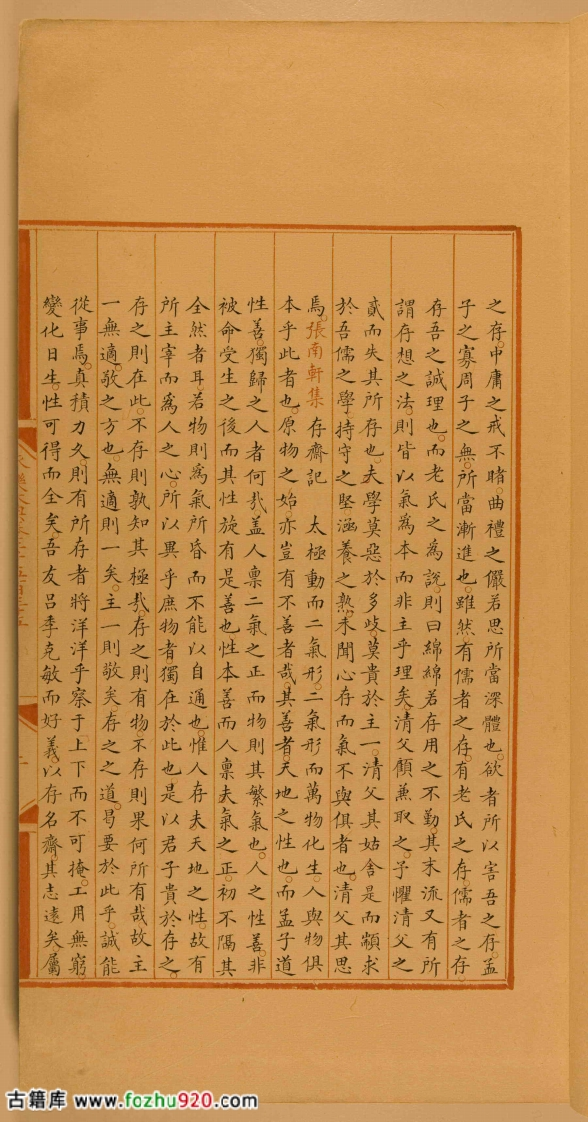 之存。中庸之戒不睹。曲禮之儼若思所當深體也。欲者所以害吾之存。孟
子之寡周子之無。所當漸進也。雖然。有儒者之存。有老氏之存。儒者之存。
存吾之誠理也。而老氏之為說。則曰綿綿若存用之不勤。其末流又有所
謂存想之法。則皆以氣為本而非主乎理矣。清父顧兼取之。予懼清父之
貳而失其所存也。夫學莫惡於多歧。莫貴於主一。清父其姑舍是而顓求
於吾儒之學。持守之堅。涵養之熟。未聞心存而氣不與俱者也。清父其思
焉。張南軒集 存齋記 太極動而二氣形。二氣形而萬物化生。人與物俱
本乎此者也。原物之始。亦豈有不善者哉。其善者。天地之性也。而孟子道
性善。獨歸之人者何哉。盖人禀二氣之正而物則其繁氣也。人之性善。非
被命受生之後而其性旋有是善也。性本善而人禀夫氣之正。初不隔其
全然者耳。若物則為氣所昏而不能以自通也。惟人存夫天地之性。故有
所主宰而為人之心。所以異乎庶物者獨在於此也。是以君子貴於存之。
存之則在此。不存則孰知其極哉。存之則有物。不存則果何所有哉。故主
一無適。敬之方也。無適則一矣。主一則敬矣。存之之道。曷要於此乎。誠能
從事焉。真積力久則有所存者將洋洋乎察于上下而不可掩。工用無窮
變化日生。性可得而全矣。吾友呂季克敏而好義。以存名齋。其志遠矣。屬
古籍库 www.fozhu920.com